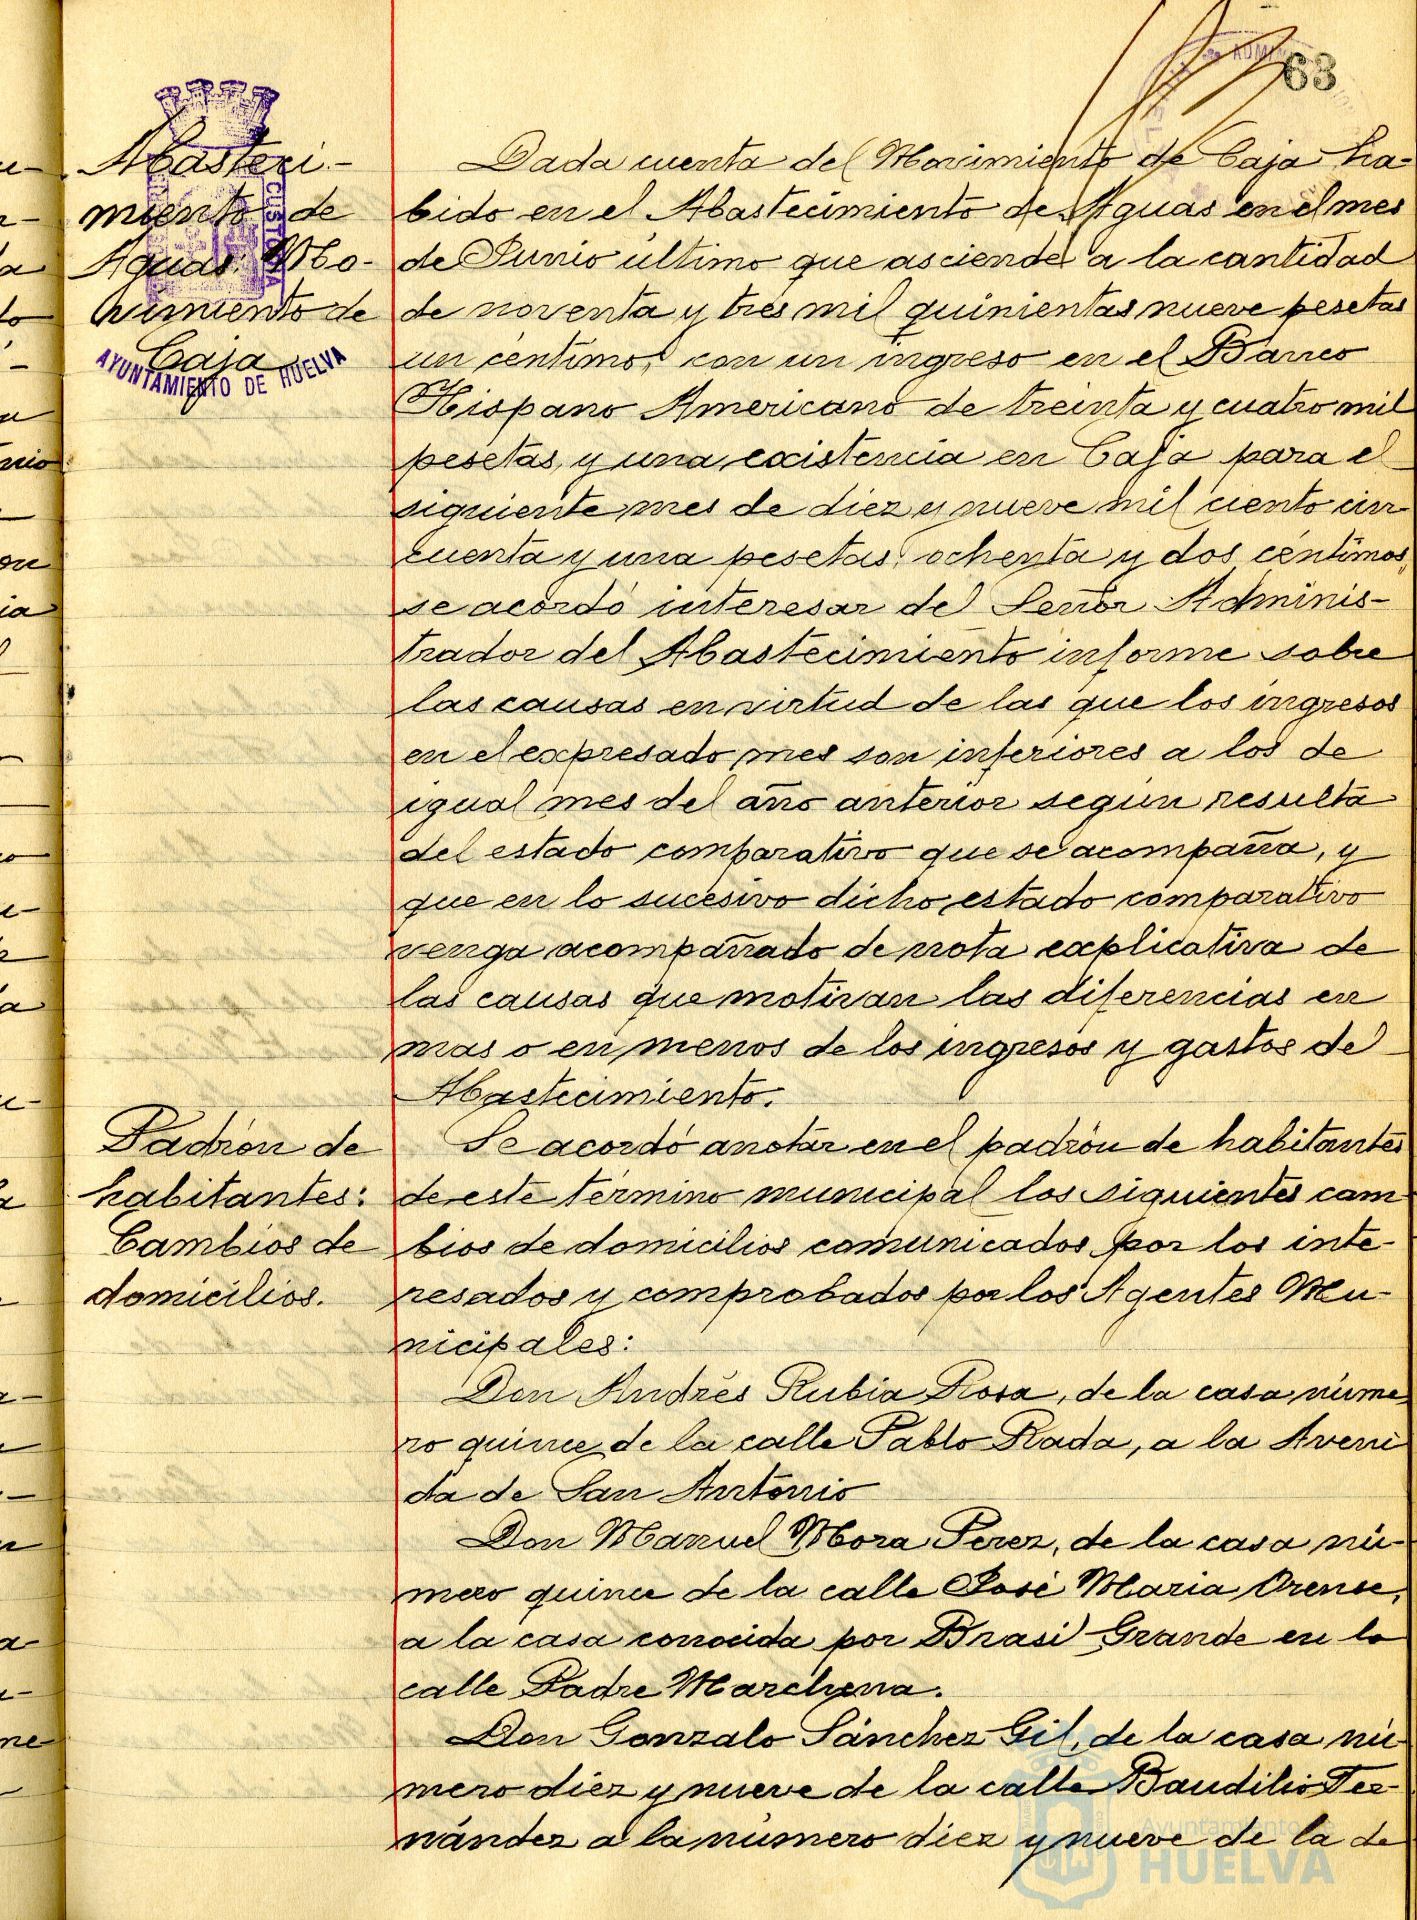 63
Abasteci-
miento de
Aguas: Mo-
vimiento de
Caja
CUSTODIA
AYUNTAMIENTO DE HUELVA
Dada cuenta del Movimiento de Caja ha-
bido en el Abastecimiento de Aguas en el mes
de Junio último que asciende a la cantidad
de noventa y tres mil quinientas nueve pesetas
un céntimo, con un ingreso en el Banco
Hispano Americano de treinta y cuatro mil
pesetas, y una existencia en Caja para el
siguiente mes de diez y nueve mil ciento cin-
cuenta y una pesetas ochenta y dos céntimos,
se acordó interesar del Señor Adminis-
trador del Abastecimiento informe sobre
las causas en virtud de las que los ingresos
en el expresado mes son inferiores a los de
igual mes del año anterior según resulta
del estado comparativo que se acompaña, y
que en lo sucesivo dicho estado comparativo
venga acompañado de nota explicativa de
las causas que motivan las diferencias en
mas o en menos de los ingresos y gastos del
Abastecimiento.
Padrón de
habitantes:
Cambios de
domicilios.
Se acordó anotar en el padrón de habitantes
de este término municipal los siguientes cam-
bios de domicilios comunicados por los inte-
resados y comprobados por los Agentes Mu-
nicipales:
Don Andrés Rubia Rosa, de la casa núme
ro quince de la calle Pablo Rada, a la Aveni
da de San Antonio
Don Manuel Mora Perez, de la casa nú-
mero quince de la calle José Maria Orense,
a la casa conocida por Brasil Grande en la
calle Padre Marchena.
Don Gonzalo Sánchez Gil, de la casa nú-
mero diez y nueve de la calle Baudilio Fer-
nández a la número diez y nueve de la de
Ayuntamiento de
HUELVA